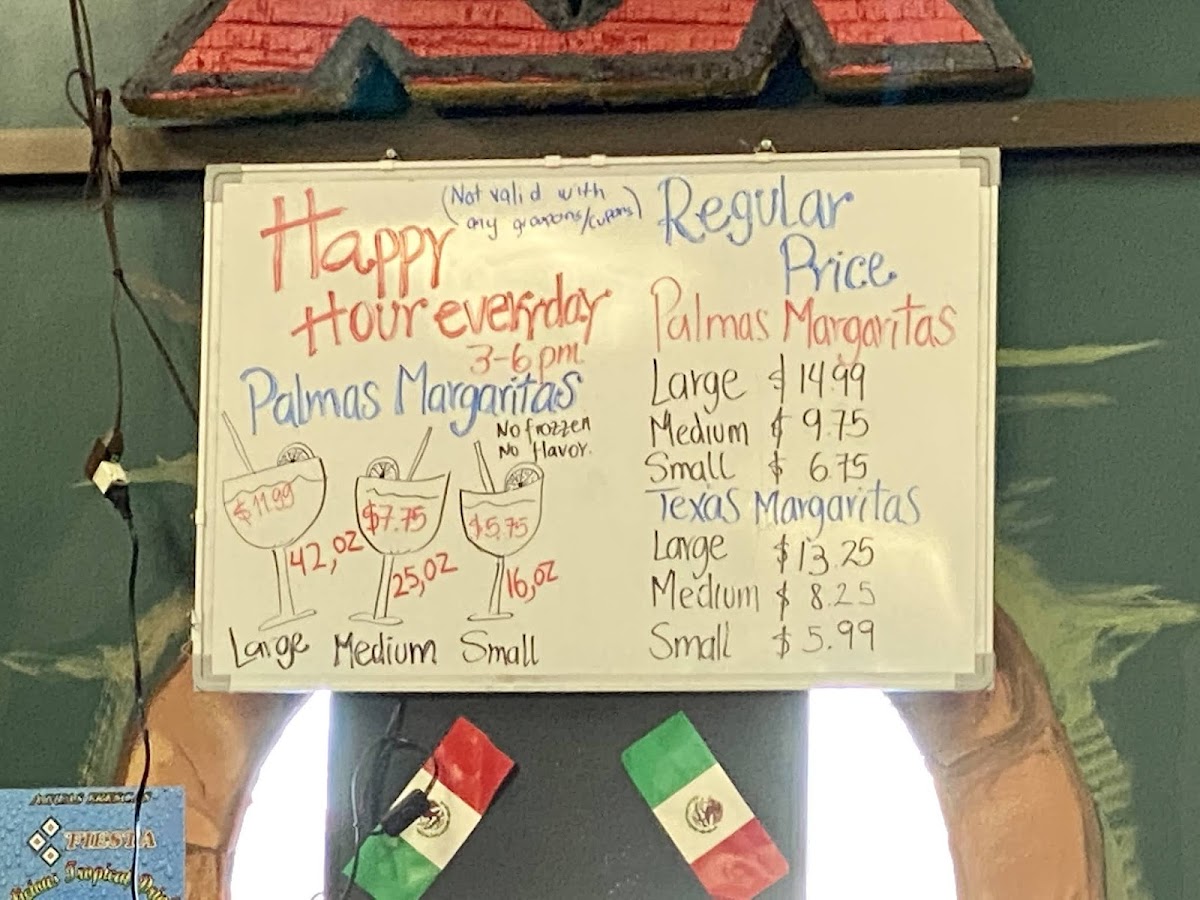 Happy
(Not valid with
any groupons/cupons)
Hour everyday
3-6 pm
Palmas Margaritas
No frozzen
No flavor.
$11.99
$7.75
$5.75
42,oz
25,oz
16,oz
Large Medium Small
Regular
Price
Palmas Margaritas
Large $14.99
Medium $ 9.75
Small $ 6.75
Texas Margaritas
Large $13.25
Medium $ 8.25
Small $ 5.99
FIESTA
Tropical